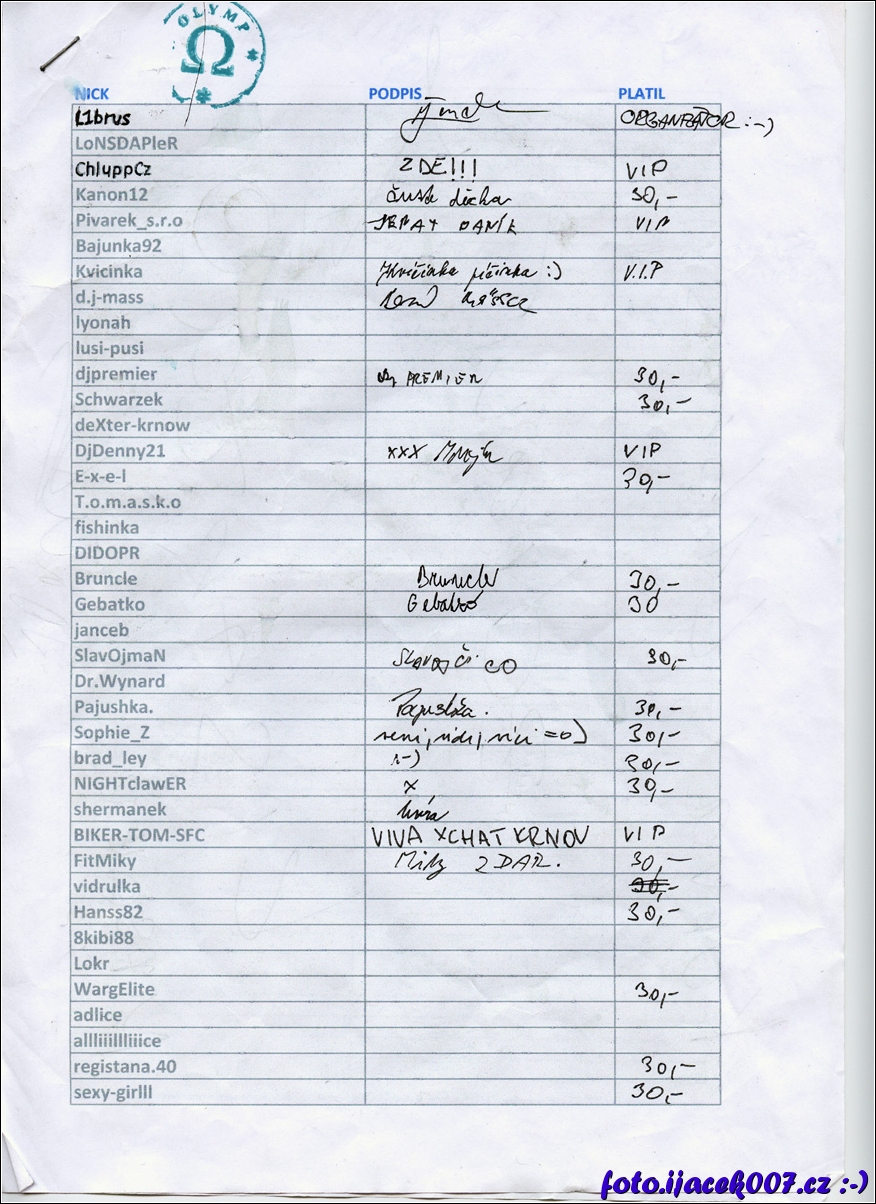 OLYMP
Ω
NICK PODPIS PLATIL
L1brus ORGANIZÁTOR :-)
LoNSDAPleR
ChluppCz ZDE!!! VIP
Kanon12 30,-
Pivarek_s.r.o VIP
Bajunka92
Kvicinka Kvičinka :) V.I.P
d.j-mass
lyonah
lusi-pusi
djpremier PREMIER 30,-
Schwarzek 30,-
deXter-krnow
DjDenny21 xxx VIP
E-x-e-l 30,-
T.o.m.a.s.k.o
fishinka
DIDOPR
Bruncle Bruncle 30,-
Gebatko Gebatko 30
janceb
SlavOjmaN 30,-
Dr.Wynard
Pajushka. Pajuška. 30,-
Sophie_Z =o) 30,-
brad_ley :-) 30,-
NIGHTclawER x 30,-
shermanek
BIKER-TOM-SFC VIVA XCHAT KRNOV VIP
FitMiky Miky ZDAR. 30,-
vidrulka 30,-
Hanss82 30,-
8kibi88
Lokr
WargElite 30,-
adlice
allliiillliiice
registana.40 30,-
sexy-girlll 30,-
foto.ijacek007.cz :-)